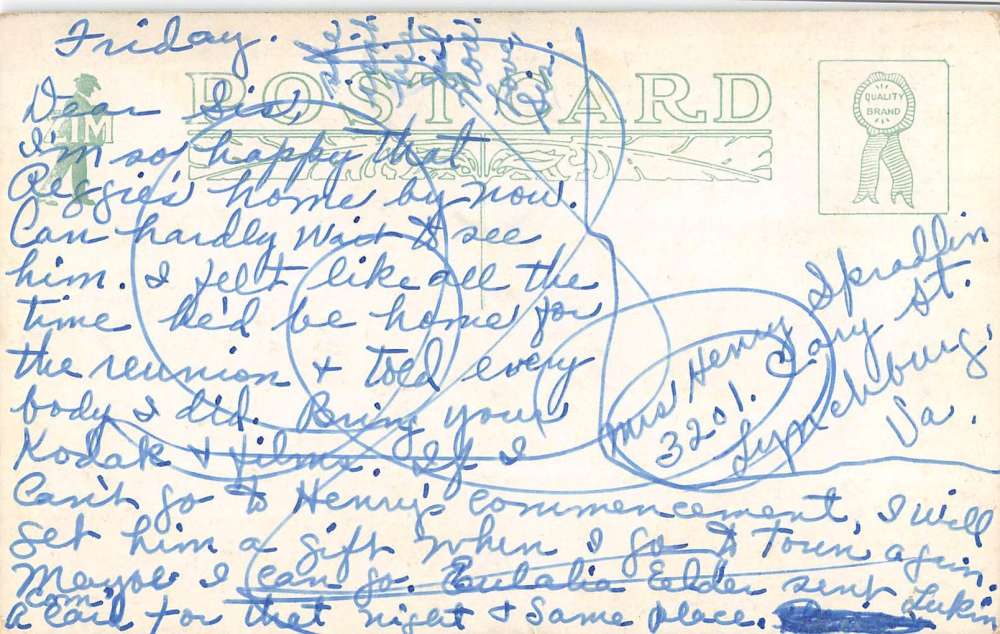 Friday.
POST CARD
M
QUALITY
BRAND
Dear Sis,
I'm so happy that
Reggie's home by now.
Can hardly wait to see
him. I felt like all the
time he'd be home for
the reunion + told every
body I did. Bring your
Kodak + films. If I
Can't go to Henry's commencement, I will
get him a gift when I go to Town again.
Maybe I can go. Eulalia Elder sent Lukin
a Com. Card for that night + Same place.
Mrs Henry Spradlin
3201. Cary St.
Lynchburg,
Va.